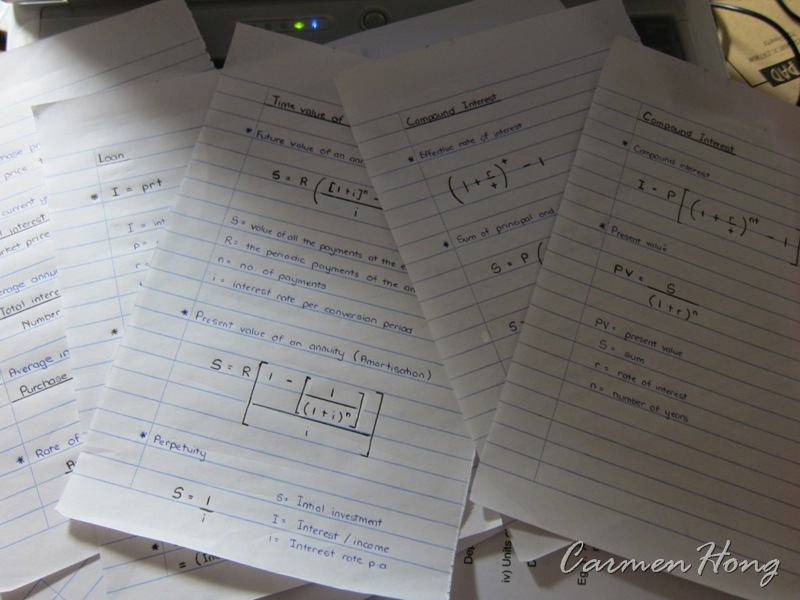 hase pr
price
current y
al interest
rket price
erage annu
Total intere
Number
Average in
Purchase
* Rate of
Loan
* I = prt
I = int
p =
r =
*
*
= (In
Time value of
* Future value of an ann
S = R ( [1+i]ⁿ -
i
S = value of all the payments at the e
R = the periodic payments of the an
n = no. of payments
i = interest rate per conversion period
* Present value of an annuity (Amortisation)
S = R [ 1 - [ 1 / (1+i)ⁿ ] / i ]
* Perpetuity
S = I / i
S = Intial investment
I = Interest / income
i = Interest rate p.a
Compound Interest
* Effective rate of interest
(1 + r/t)ᵗ - 1
* Sum of principal and
S = P (
S =
Compound Interest
* Compound interest
I = P [ (1 + r/t)ⁿᵗ - 1 ]
* Present value
PV = S / (1+r)ⁿ
PV = present value
S = sum
r = rate of interest
n = number of years
PAD
iv) Units
Eg
Carmen Hong